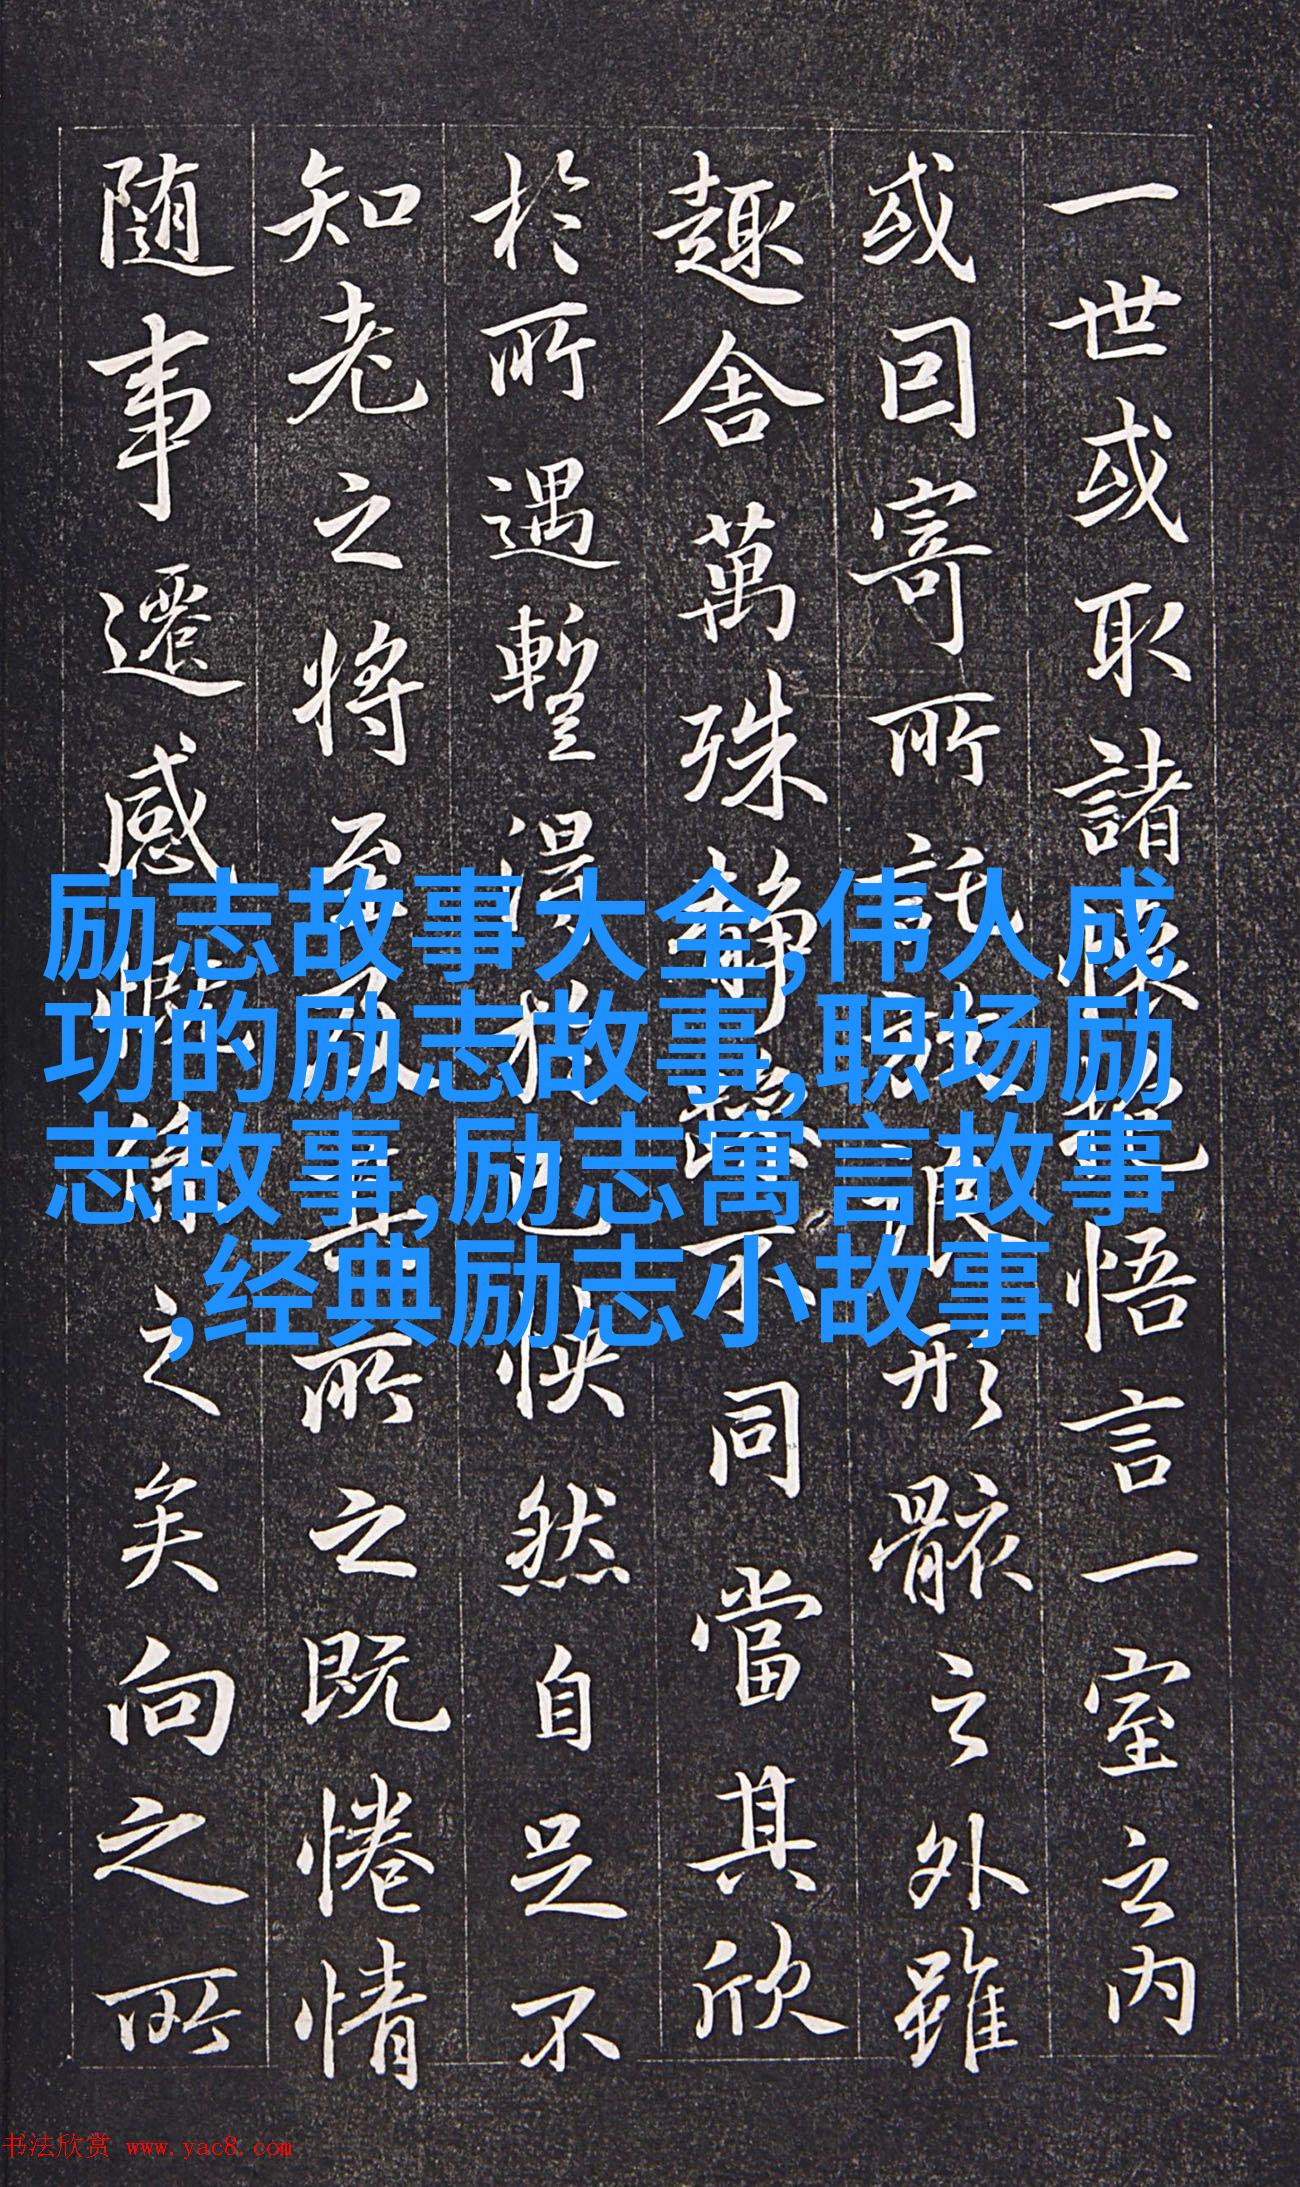 一世或取諸懷抱悟言一室之内
或囙寄所託放浪形骸之外雖
趣舍萬殊静躁不同當其欣
於所遇蹔得於己怏然自足不
知老之將至及其所之既惓情
随事遷感慨係之矣向之所
励志故事大全,伟人成
功的励志故事,职场励
志故事,励志寓言故事
,经典励志小故事
书法欣赏 www.yac8.com